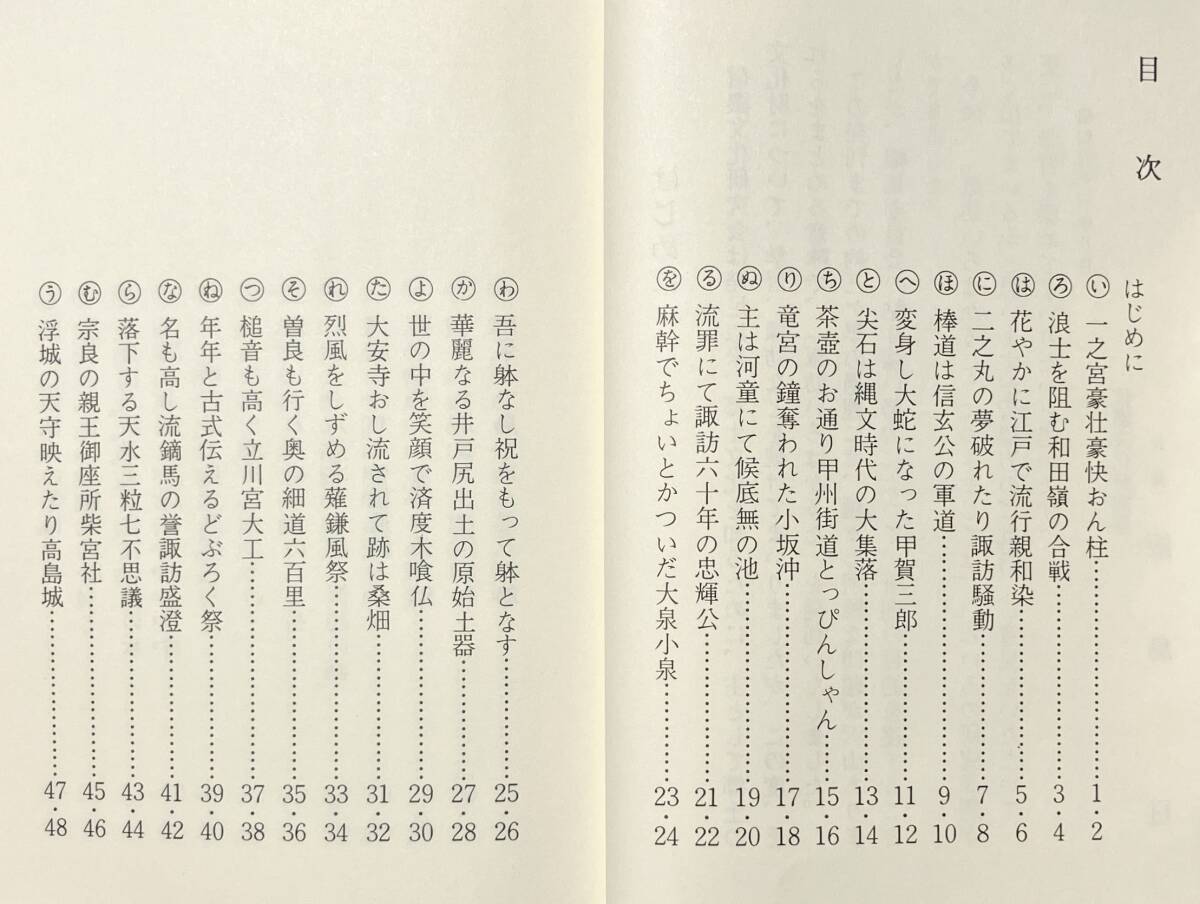 目次
はじめに
い 一之宮豪壮豪快おん柱……………………1・2
ろ 浪士を阻む和田嶺の合戦……………………3・4
は 花やかに江戸で流行親和染……………………5・6
に 二之丸の夢破れたり諏訪騒動……………………7・8
ほ 棒道は信玄公の軍道……………………9・10
へ 変身し大蛇になった甲賀三郎……………………11・12
と 尖石は縄文時代の大集落……………………13・14
ち 茶壺のお通り甲州街道とっぴんしゃん……………………15・16
り 竜宮の鐘奪われた小坂沖……………………17・18
ぬ 主は河童にて候底無の池……………………19・20
る 流罪にて諏訪六十年の忠輝公……………………21・22
を 麻幹でちょいとかついだ大泉小泉……………………23・24
わ 吾に躰なし祝をもって躰となす……………………25・26
か 華麗なる井戸尻出土の原始土器……………………27・28
よ 世の中を笑顔で済度木喰仏……………………29・30
た 大安寺おし流されて跡は桑畑……………………31・32
れ 烈風をしずめる薙鎌風祭……………………33・34
そ 曽良も行く奥の細道六百里……………………35・36
つ 槌音も高く立川宮大工……………………37・38
ね 年年と古式伝えるどぶろく祭……………………39・40
な 名も高し流鏑馬の誉諏訪盛澄……………………41・42
ら 落下する天水三粒七不思議……………………43・44
む 宗良の親王御座所柴宮社……………………45・46
う 浮城の天守映えたり高島城……………………47・48